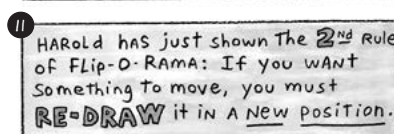 11
HAROLD HAS just shown The 2nd Rule
of FLiP-O-RAMA: If you WANT
Something To move, you must
RE-DRAW it in A New Position.